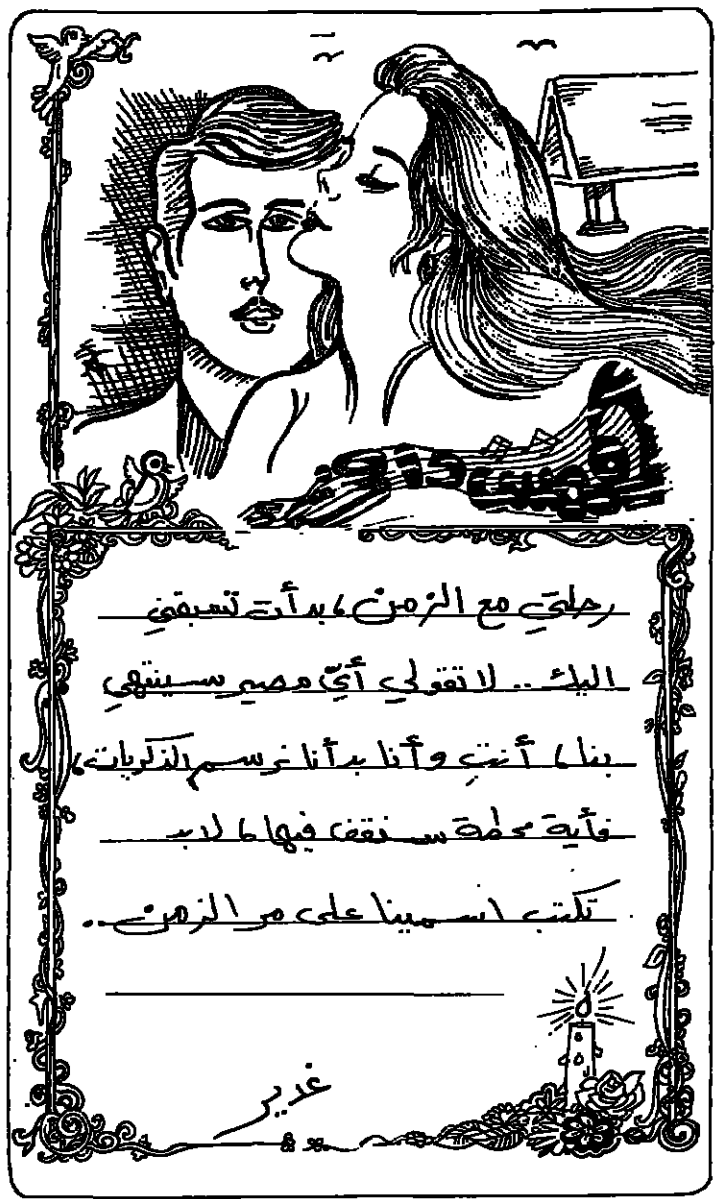 رحلتي مع الزمن، بدأت تسبقني
اليك .. لا تقولي أيّ مصير سينتهي
بنا، أنتِ وأنا بدأنا نرسم الذكريات،
فأية محطة سنقف فيها، لابد
تكتب اسمينا على مر الزمن ..
غدير